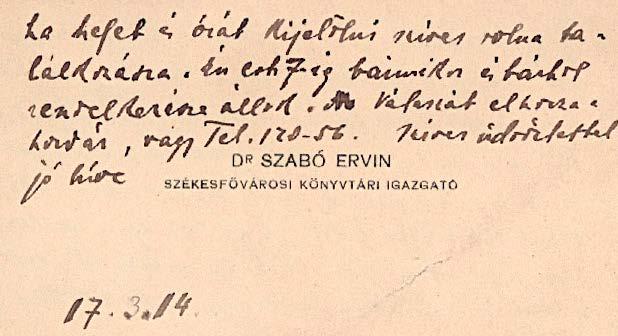 ha helyet és órát kijelölni szíves volna ta-
lálkozásra. Én este 7-ig bármikor és bárhol
rendelkezésre állok. Választ elhozza a
hordár, vagy Tel. 128-56. Szíves üdvözlettel
DR SZABÓ ERVIN
jó híve
SZÉKESFŐVÁROSI KÖNYVTÁRI IGAZGATÓ
17.3.14.